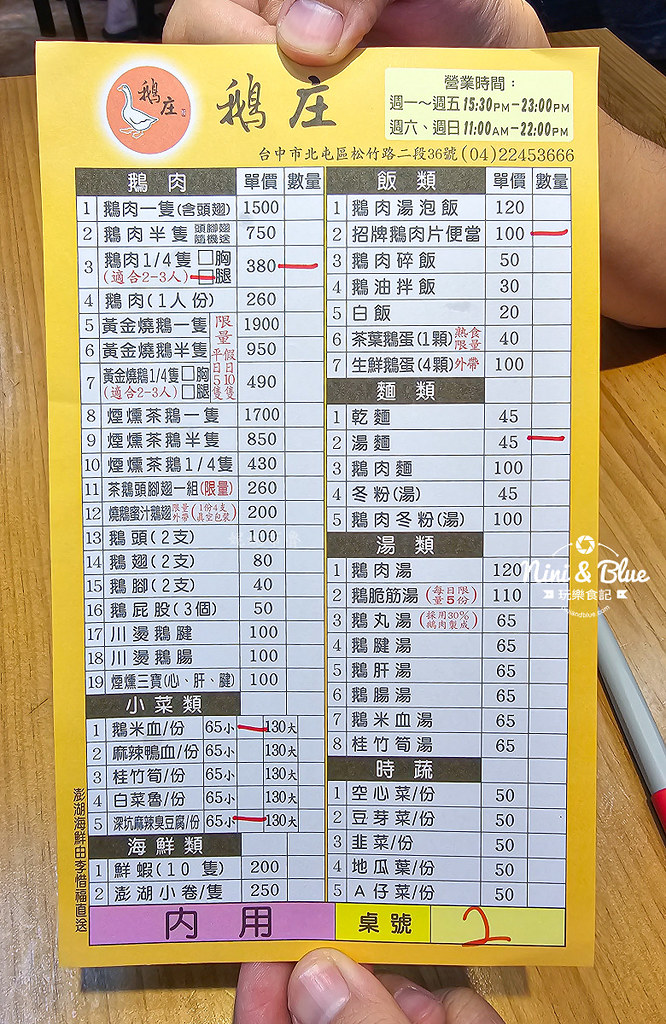 鵝庄
鵝庄
營業時間：
週一～週五 15:30PM－23:00PM
週六、週日 11:00AM－22:00PM
台中市北屯區松竹路二段36號 (04)22453666
鵝肉 單價 數量
1 鵝肉一隻(含頭翅) 1500
2 鵝肉半隻 頭腳翅隨機送 750
3 鵝肉1/4隻 □胸 (適合2-3人) □腿 380
4 鵝肉(1人份) 260
5 黃金燒鵝一隻 1900
6 黃金燒鵝半隻 950
7 黃金燒鵝1/4隻 □胸 (適合2-3人) □腿 490
限量 平日5隻 假日10隻
8 煙燻茶鵝一隻 1700
9 煙燻茶鵝半隻 850
10 煙燻茶鵝1/4隻 430
11 茶鵝頭腳翅一組(限量) 260
12 燒鵝蜜汁鵝翅 限量外帶 (1份4支真空包裝) 200
13 鵝頭(2支) 100
14 鵝翅(2支) 80
15 鵝腳(2支) 40
16 鵝屁股(3個) 50
17 川燙鵝腱 100
18 川燙鵝腸 100
19 煙燻三寶(心、肝、腱) 100
小菜類
1 鵝米血/份 65小 130大
2 麻辣鴨血/份 65小 130大
3 桂竹筍/份 65小 130大
4 白菜魯/份 65小 130大
5 深坑麻辣臭豆腐/份 65小 130大
海鮮類
1 鮮蝦(10隻) 200
2 澎湖小卷/隻 250
澎湖海鮮由李惜福直送
飯類 單價 數量
1 鵝肉湯泡飯 120
2 招牌鵝肉片便當 100
3 鵝肉碎飯 50
4 鵝油拌飯 30
5 白飯 20
6 茶葉鵝蛋(1顆) 熟食限量 40
7 生鮮鵝蛋(4顆) 外帶 100
麵類
1 乾麵 45
2 湯麵 45
3 鵝肉麵 100
4 冬粉(湯) 45
5 鵝肉冬粉(湯) 100
湯類
1 鵝肉湯 120
2 鵝脆筋湯 (每日限量5份) 110
3 鵝丸湯 (採用30%鵝肉製成) 65
4 鵝腱湯 65
5 鵝肝湯 65
6 鵝腸湯 65
7 鵝米血湯 65
8 桂竹筍湯 65
時蔬
1 空心菜/份 50
2 豆芽菜/份 50
3 韭菜/份 50
4 地瓜葉/份 50
5 A仔菜/份 50
內用 桌號 2
Nini & Blue
玩樂食記